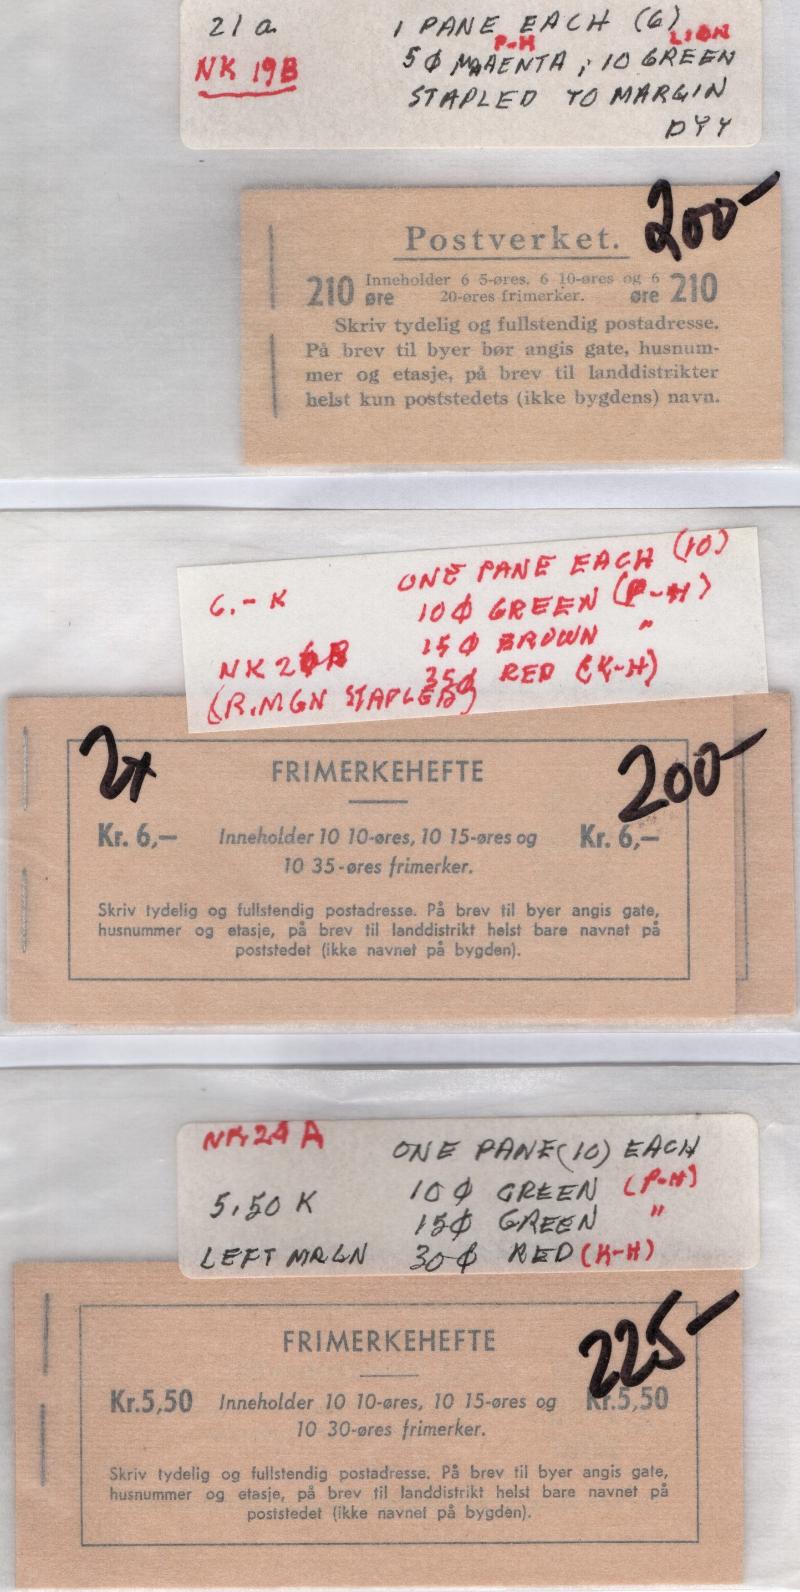 21a 1 PANE EACH (6)
P-H LION
NK 19B 5¢ MAAENTA; 10 GREEN
STAPLED TO MARGIN
200-
Postverket.
210 øre Inneholder 6 5-øres, 6 10-øres og 6 øre 210
20-øres frimerker.
Skriv tydelig og fullstendig postadresse.
På brev til byer bør angis gate, husnum-
mer og etasje, på brev til landdistrikter
helst kun poststedets (ikke bygdens) navn.
6.- K ONE PANE EACH (10)
10¢ GREEN (P-H)
15¢ BROWN "
NK 35¢ RED (K-H)
(R.MGN STAPLED)
2x 200-
FRIMERKEHEFTE
Kr. 6,— Inneholder 10 10-øres, 10 15-øres og Kr. 6,—
10 35-øres frimerker.
Skriv tydelig og fullstendig postadresse. På brev til byer angis gate,
husnummer og etasje, på brev til landdistrikt helst bare navnet på
poststedet (ikke navnet på bygden).
NK 24 A ONE PANE (10) EACH
10¢ GREEN (P-H)
5,50 K 15¢ GREEN "
LEFT MRGN 30¢ RED (K-H)
225-
FRIMERKEHEFTE
Kr.5,50 Inneholder 10 10-øres, 10 15-øres og Kr.5,50
10 30-øres frimerker.
Skriv tydelig og fullstendig postadresse. På brev til byer angis gate,
husnummer og etasje, på brev til landdistrikt helst bare navnet på
poststedet (ikke navnet på bygden).